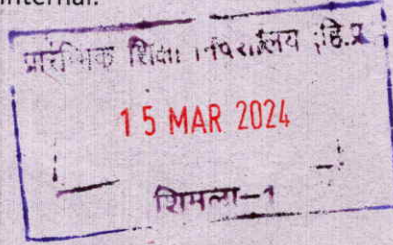 internal.
प्रारंभिक शिक्षा निदेशालय हि.प्र.
15 MAR 2024
शिमला-1